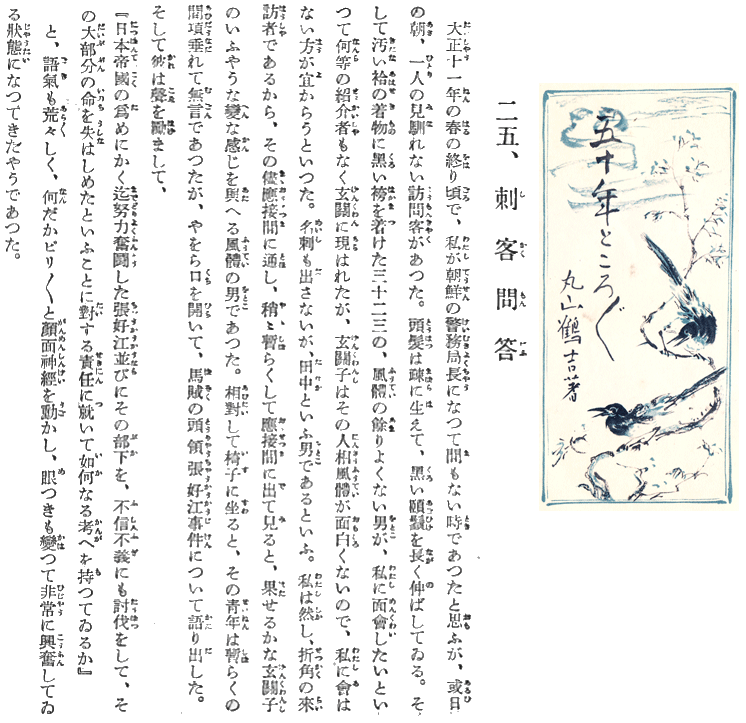 五十年ところ〴〵
丸山鶴吉著
二五、刺客問答
大正十一年の春の終り頃で、私が朝鮮の警務局長になつて間もない時であつたと思ふが、或日
の朝、一人の見馴れない訪問客があつた。頭髮は疎に生えて、黒い頤鬚を長く伸ばしてゐる。そ
して汚い袷の着物に黒い袴を着けた三十二三の、風體の餘りよくない男が、私に面會したいとい
つて何等の紹介者もなく玄關に現はれたが、玄關子はその人相風體が面白くないので、私に會は
ない方が宜からうといつた。名刺も出さないが、田中といふ男であるといふ。私は然し、折角の來
訪者であるから、その儘應接間に通し、稍〻暫らくして應接間に出て見ると、果せるかな玄關子
のいふやうな變な感じを與へる風體の男であつた。相對して椅子に坐ると、その青年は暫らくの
間項垂れて無言であつたが、やをら口を開いて、馬賊の頭領張好江事件について語り出した。
そして彼は聲を勵まして、
『日本帝國の爲めにかく迄努力奮鬪した張好江並びにその部下を、不信不義にも討伐をして、そ
の大部分の命を失はしめたといふことに對する責任に就いて如何なる考へを持つてゐるか』
と、語氣も荒々しく、何だかピリ〳〵と顏面神經を動かし、眼つきも變つて非常に興奮してゐ
る狀態になつてきたやうであつた。